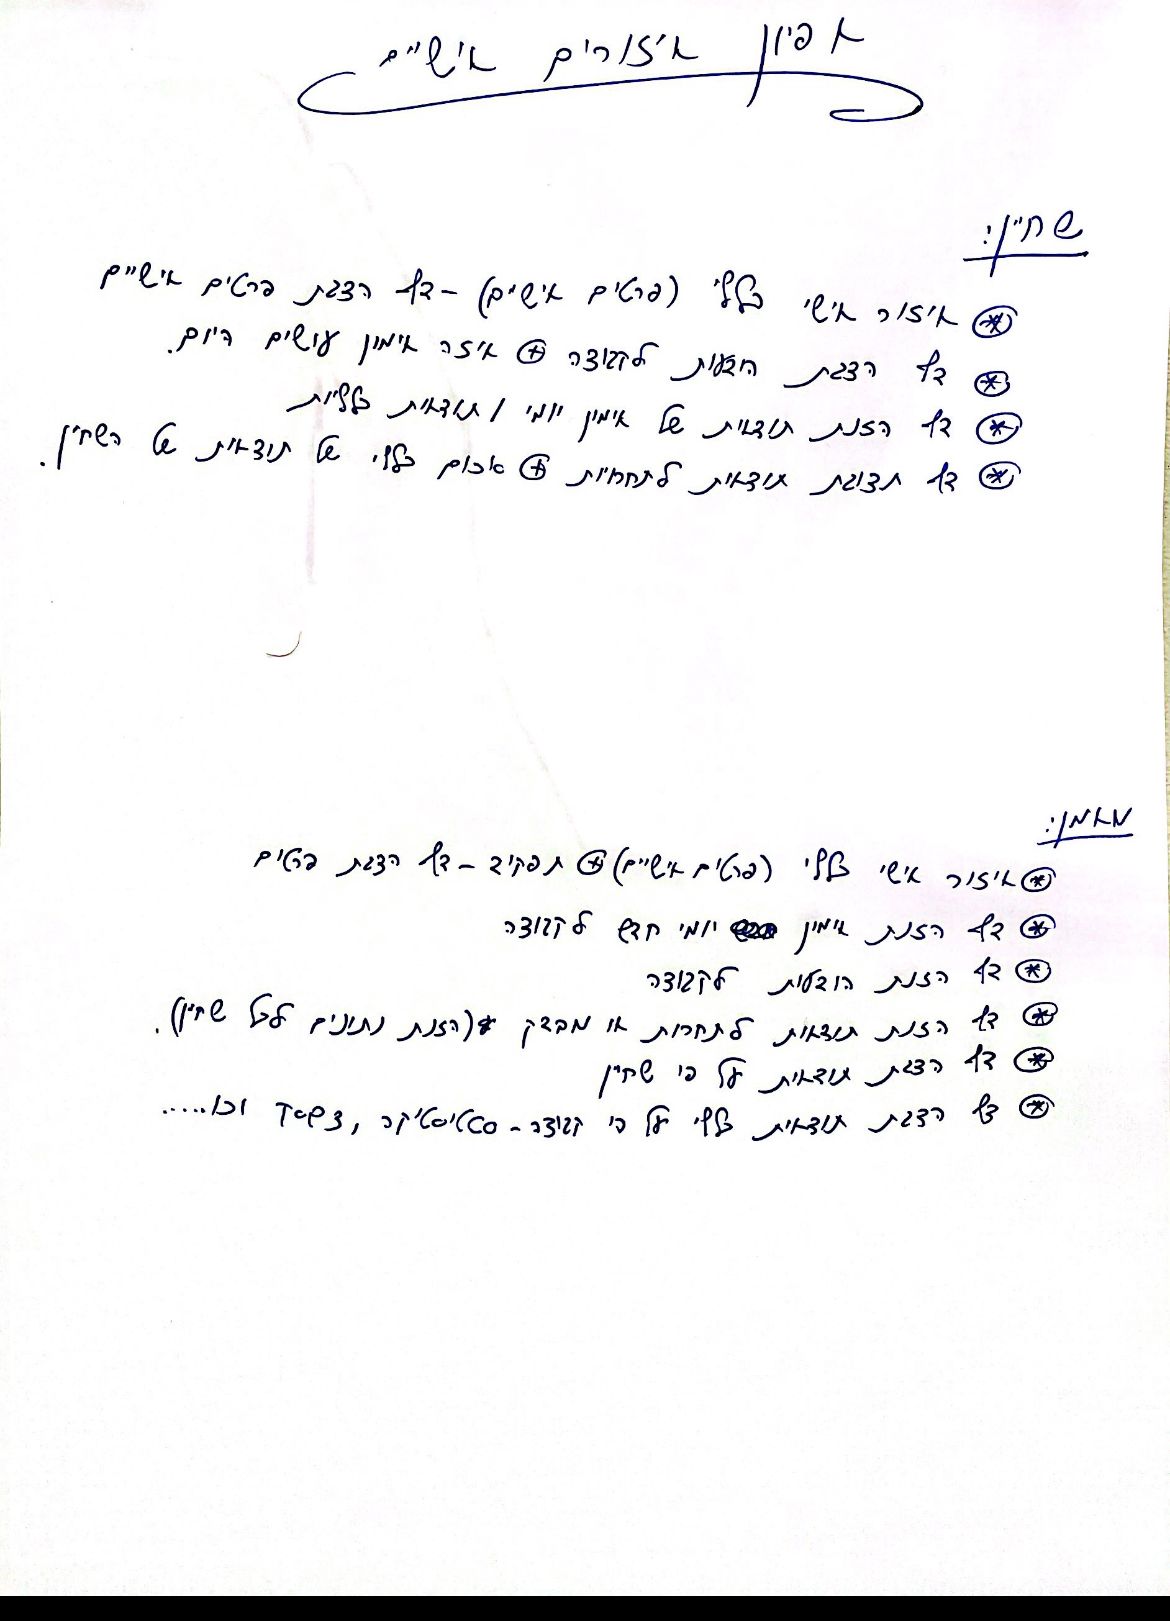 אפיון איזורים אישיים
שחיין:
* איזור אישי כללי (פרטים אישים) - דף הצגת פרטים אישיים
* דף הצגת הודעות לקבוצה + איזה אימון עושים היום.
* דף הזנת תוצאות של אימון יומי / תוצאות כלליות
* דף תצוגת תוצאות לתחרויות + סיכום כללי של תוצאות של השחיין.
מאמן:
* איזור אישי כללי (פרטים אישיים) + תפקיד - דף הצגת פרטים
* דף הזנת אימון יומי חדש לקבוצה
* דף הזנת הודעות לקבוצה
* דף הזנת תוצאות לתחרות או מבדק (הזנת נתונים לכל שחיין).
* דף הצגת תוצאות על פי שחיין
* דף הצגת תוצאות כללי על פי קבוצה - סטטיסטיקה, וכו.....